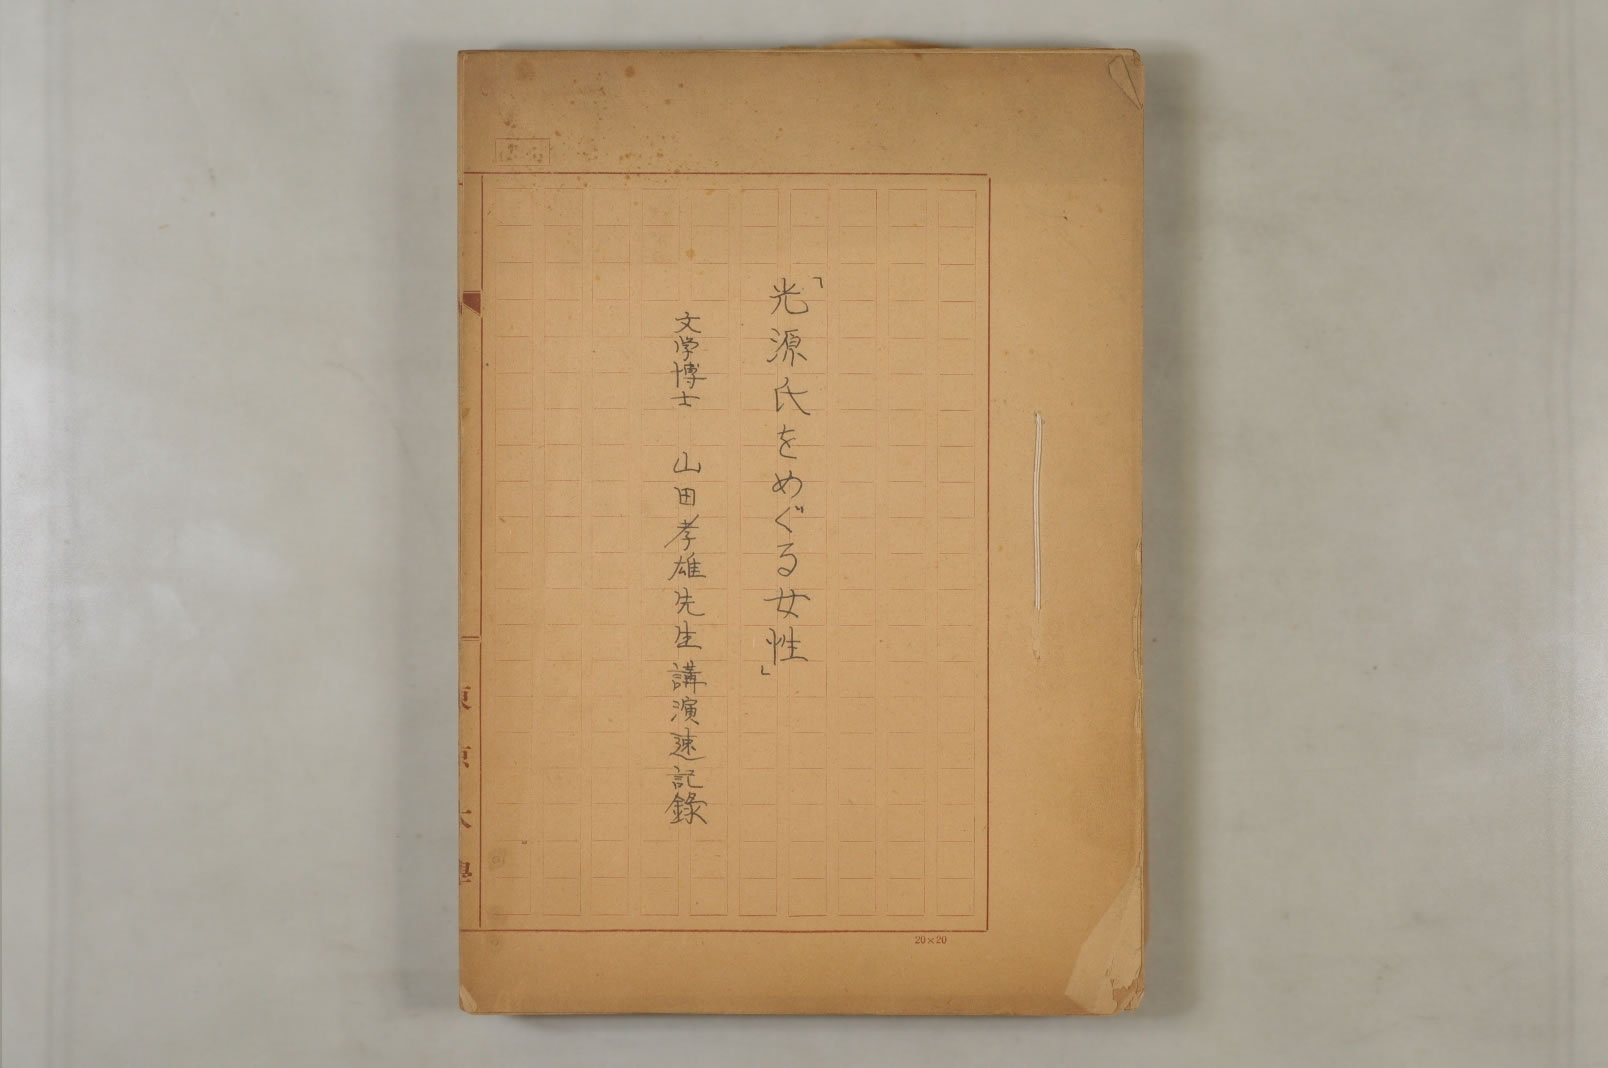 「光源氏をめぐる女性」
文学博士 山田孝雄先生講演速記録
東京大學
20×20